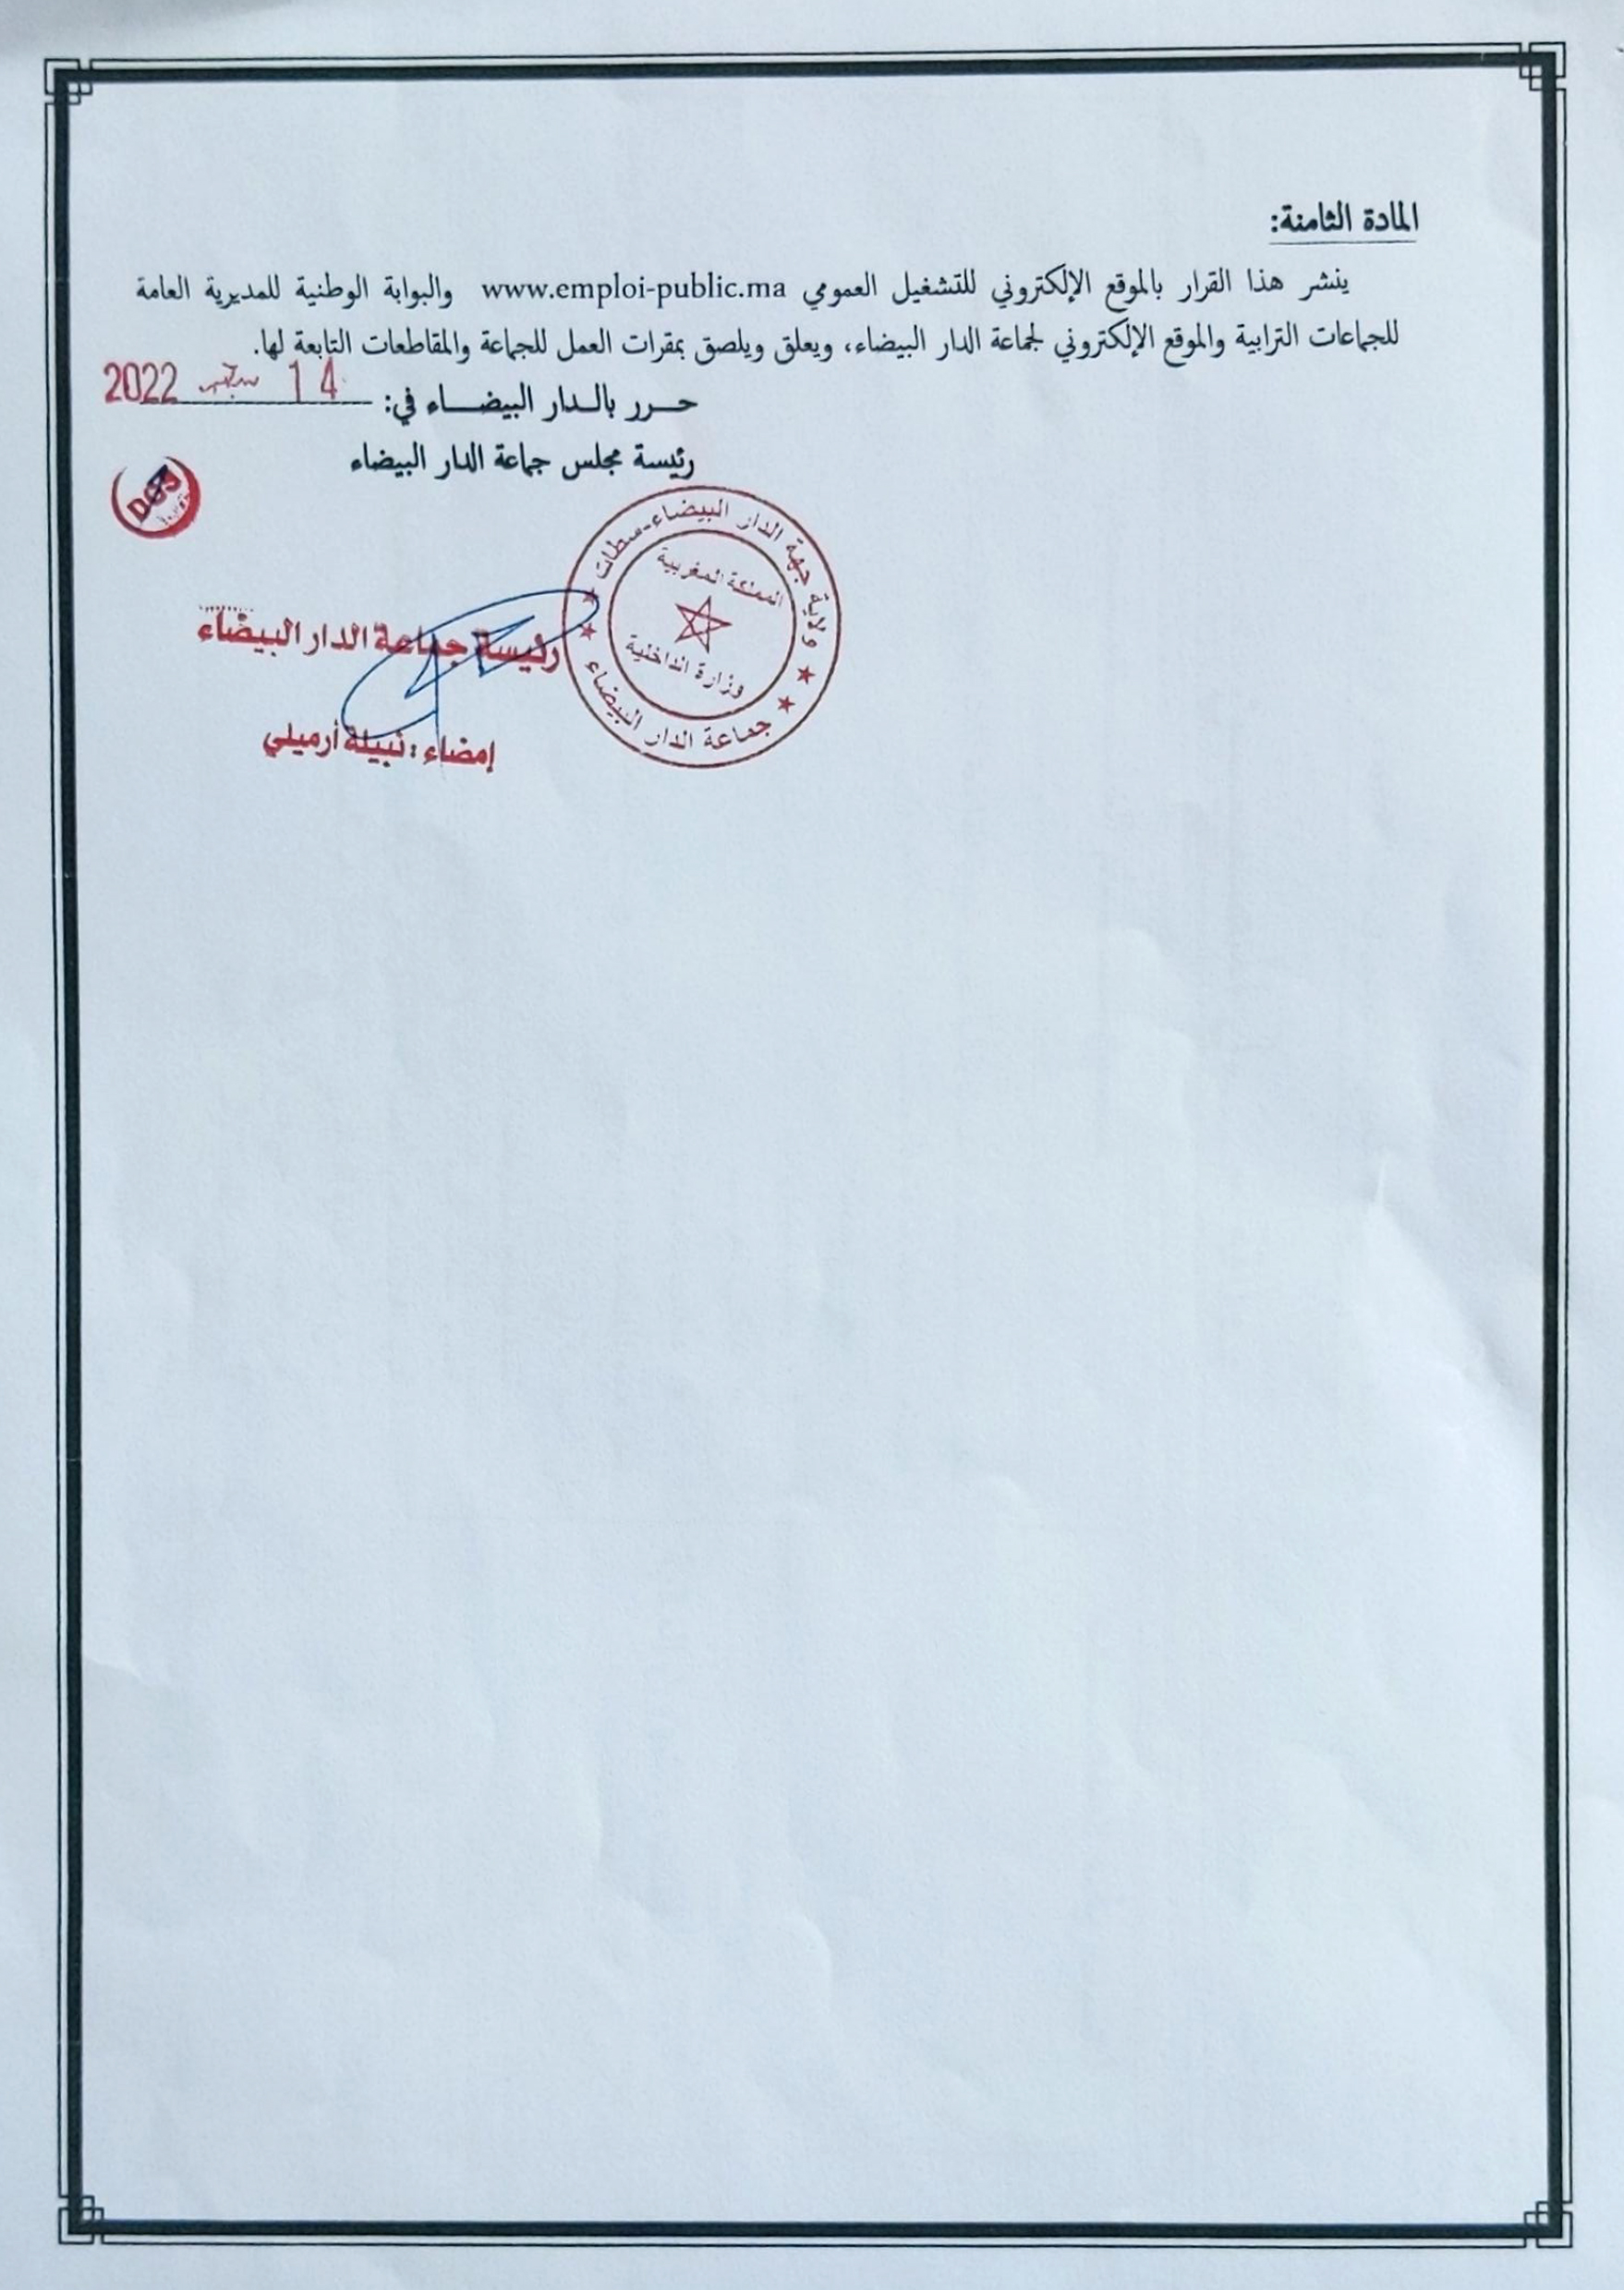 المادة الثامنة:
ينشر هذا القرار بالموقع الإلكتروني للتشغيل العمومي www.emploi-public.ma والبوابة الوطنية للمديرية العامة
للجماعات الترابية والموقع الإلكتروني لجماعة الدار البيضاء، ويعلق ويلصق بمقرات العمل للجماعة والمقاطعات التابعة لها.
حـــرر بالـــدار البيضـــاء في: 14 سبتمبر 2022
رئيسة مجلس جماعة الدار البيضاء
ولاية جهة الدار البيضاء-سطات
المملكة المغربية
وزارة الداخلية
جماعة الدار البيضاء
رئيسة جماعة الدار البيضاء
إمضاء : نبيلة أرميلي